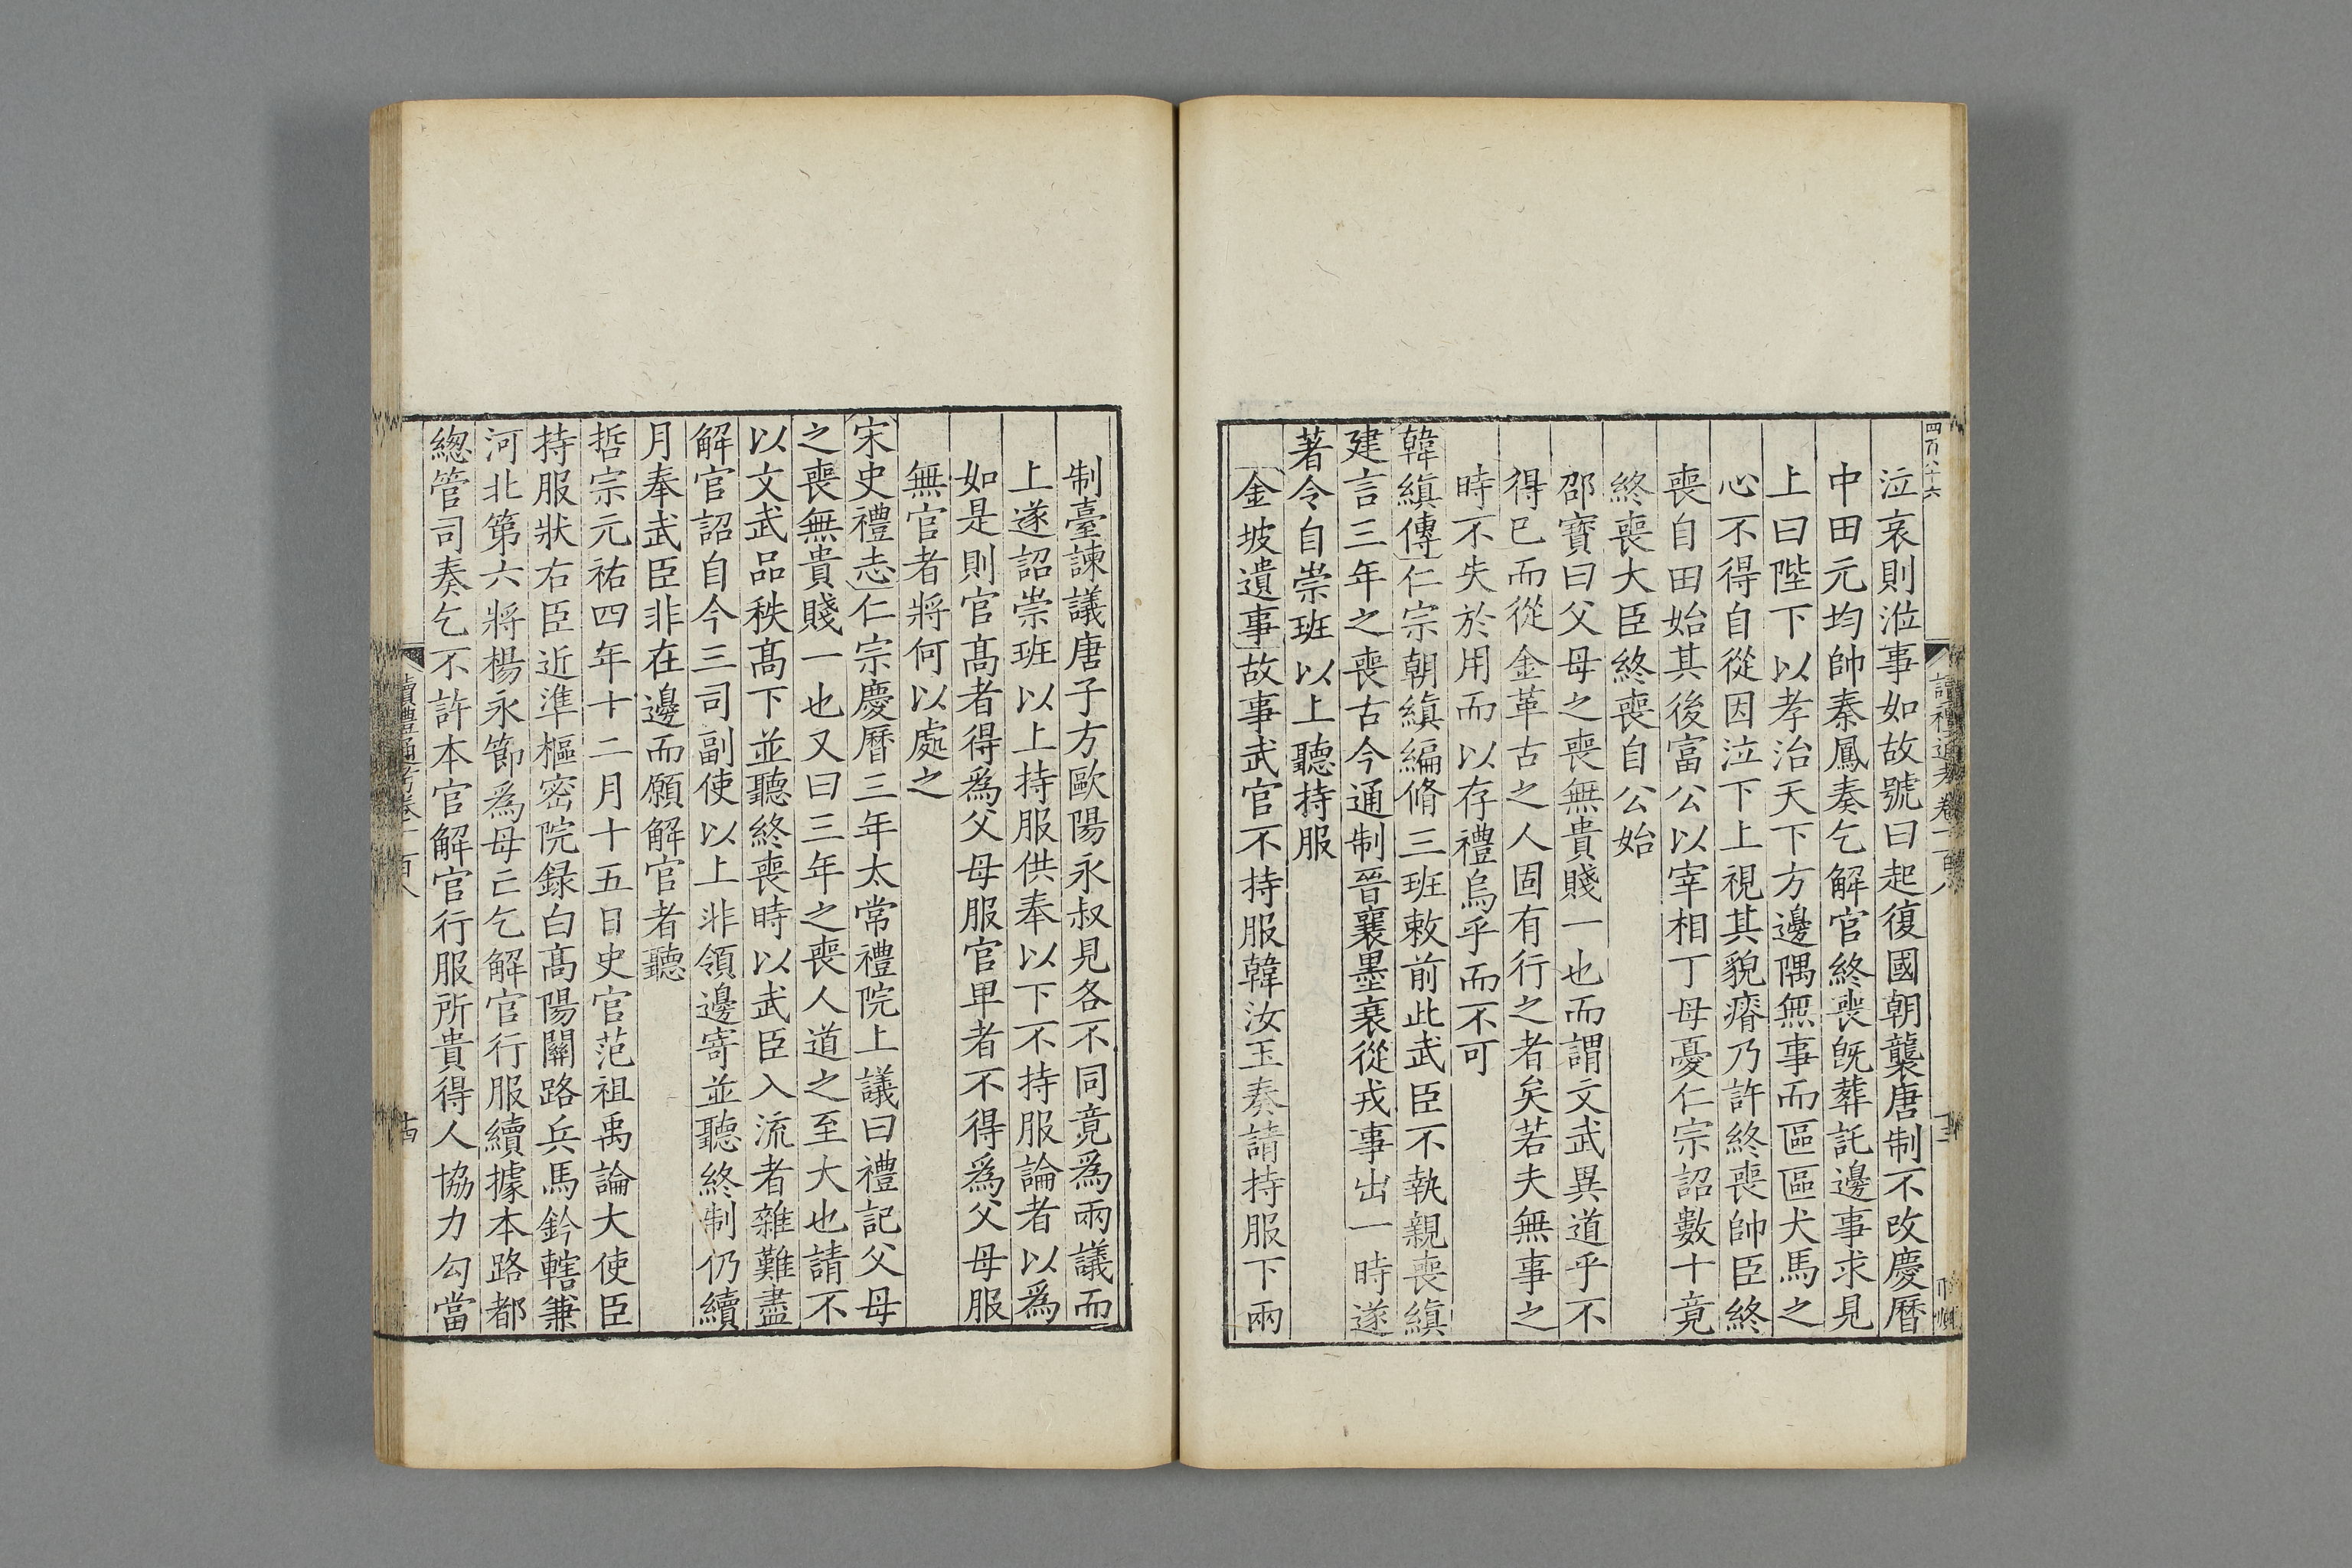 四百八十六
讀禮通考卷一百八
泣哀則涖事如故號曰起復國朝襲唐制不改慶曆
中田元均帥秦鳳奏乞解官終喪旣葬託邊事求見
上曰陛下以孝治天下方邊隅無事而區區犬馬之
心不得自從因泣下上視其貌瘠乃許終喪帥臣終
喪自田始其後富公以宰相丁母憂仁宗詔數十竟
終喪大臣終喪自公始
邵寶曰父母之喪無貴賤一也而謂文武異道乎不
得已而從金革古之人固有行之者矣若夫無事之
時不失於用而以存禮烏乎而不可
韓縝傳仁宗朝縝編脩三班敕前此武臣不執親喪縝
建言三年之喪古今通制晉襄墨衰從戎事出一時遂
著令自崇班以上聽持服
金坡遺事故事武官不持服韓汝玉奏請持服下兩
制臺諫議唐子方歐陽永叔見各不同竟爲兩議而
上遂詔崇班以上持服供奉以下不持服論者以爲
如是則官髙者得爲父母服官卑者不得爲父母服
無官者將何以處之
宋史禮志仁宗慶曆三年太常禮院上議曰禮記父母
之喪無貴賤一也又曰三年之喪人道之至大也請不
以文武品秩髙下並聽終喪時以武臣入流者雜難盡
解官詔自今三司副使以上非領邊寄並聽終制仍續
月奉武臣非在邊而願解官者聽
哲宗元祐四年十二月十五日史官范祖禹論大使臣
持服狀右臣近準樞密院録白髙陽關路兵馬鈐轄兼
河北第六將楊永節爲母亡乞解官行服續據本路都
緫管司奏乞不許本官解官行服所貴得人協力勾當
讀禮通考卷一百八
十四